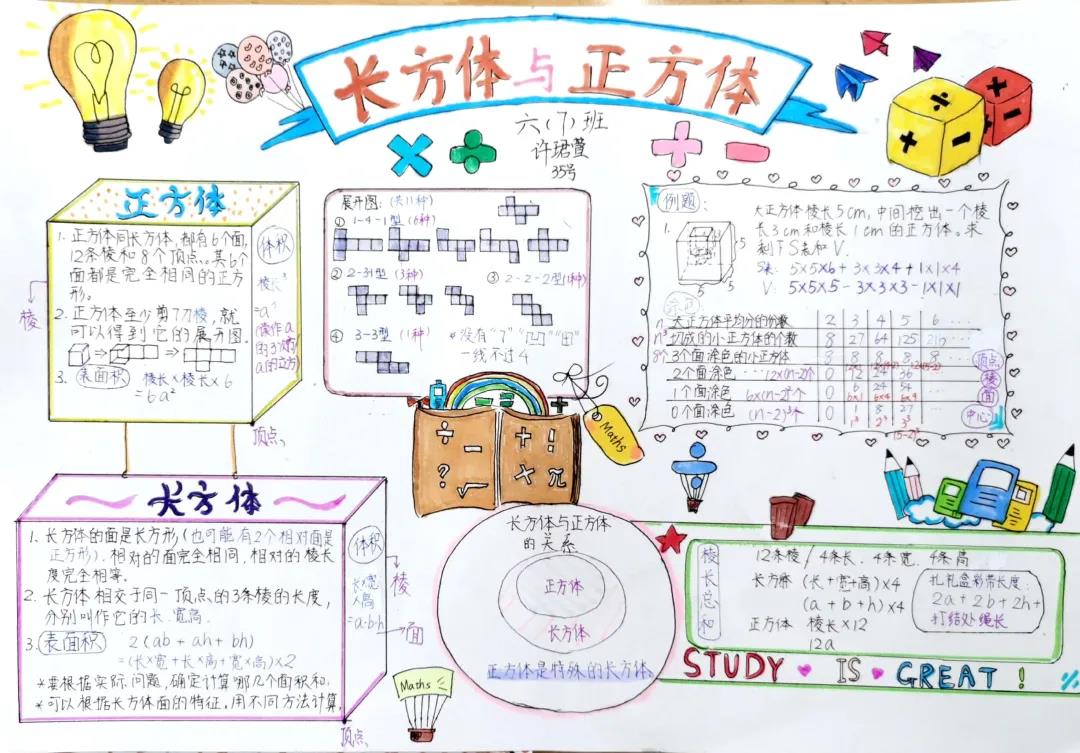 长方体与正方体
六(7)班
许珺萱
35号
正方体
1. 正方体同长方体,都有6个面,
12条棱和8个顶点。其6个
面都是完全相同的正方
形。
2. 正方体至少剪7刀棱,就
可以得到它的展开图.
3. 表面积 棱长×棱长×6
=6a²
体积
棱长³
=a³
读作a
的3次方
a的立方
棱
顶点
展开图: (共11种)
① 1-4-1型 (6种)
② 2-3-1型 (3种)
③ 2-2-2型(1种)
④ 3-3型 (1种)
*没有“7”“凹”“田”
一线不过4
例题:
1.
5
5
5
大正方体棱长5cm,中间挖出一个棱
长3cm和棱长1cm的正方体。求
剩下S表和V.
S表: 5×5×6+3×3×4+1×1×4
V: 5×5×5-3×3×3-1×1×1
n 大正方体平均分的份数 2 3 4 5 6 ····
n³ 切成的小正方体的个数 8 27 64 125 216 ····
8个 3个面涂色的小正方体 8 8 8 8 8 ····
顶点
2个面涂色 ···12×(n-2)个 0 12 24 36 ···
棱
1个面涂色 6×(n-2)²个 0 6 24 54 ···
6×1 6×4 6×9
面
0个面涂色 (n-2)³个 0 1 8 27 ···
1³ 2³ 3³
(5-2)³
中心
Maths
÷ - + !
? √ × π
长方体
1. 长方体的面是长方形(也可能有2个相对面是
正方形). 相对的面完全相同,相对的棱长
度完全相等.
2. 长方体相交于同一顶点的3条棱的长度,
分别叫作它的长.宽.高.
3. 表面积 2(ab+ah+bh)
=(长×宽+长×高+宽×高)×2
*要根据实际问题,确定计算哪几个面积和.
*可以根据长方体面的特征,用不同方法计算.
体积
长×宽
×高
=a·b·h
棱
面
顶点
Maths
长方体与正方体
的关系
正方体
长方体
正方体是特殊的长方体.
棱长总和
12条棱/4条长、4条宽、4条高
长方体 (长+宽+高)×4
(a+b+h)×4
正方体 棱长×12
12a
扎礼盒彩带长度:
2a+2b+2h+
打结处绳长
STUDY IS GREAT !